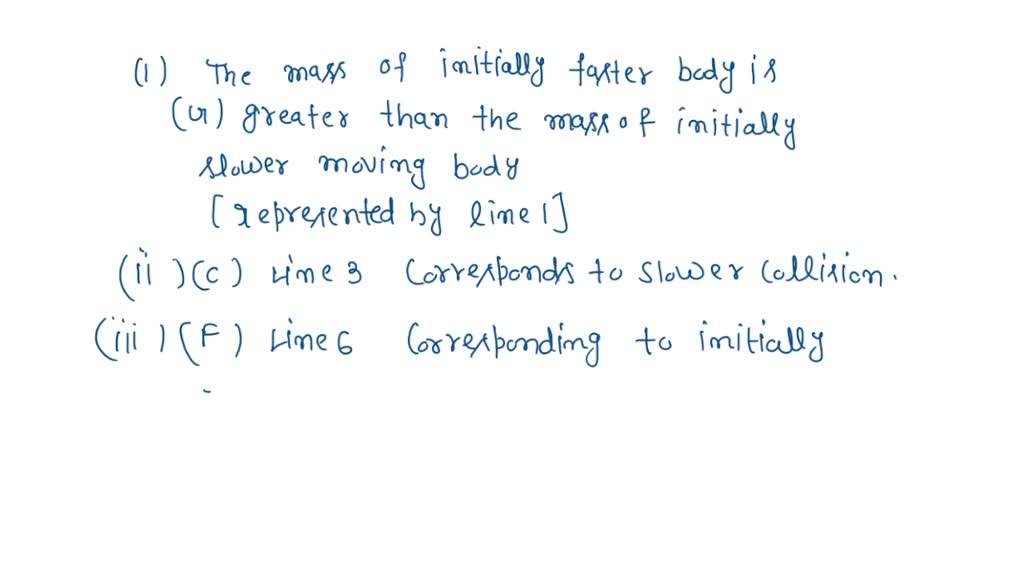 (1) The mass of initially faster body is
(a) greater than the mass of initially
slower moving body
[represented by line 1]
(ii) (c) Line 3 corresponds to slower collision.
(iii) (F) Line 6 corresponding to initially